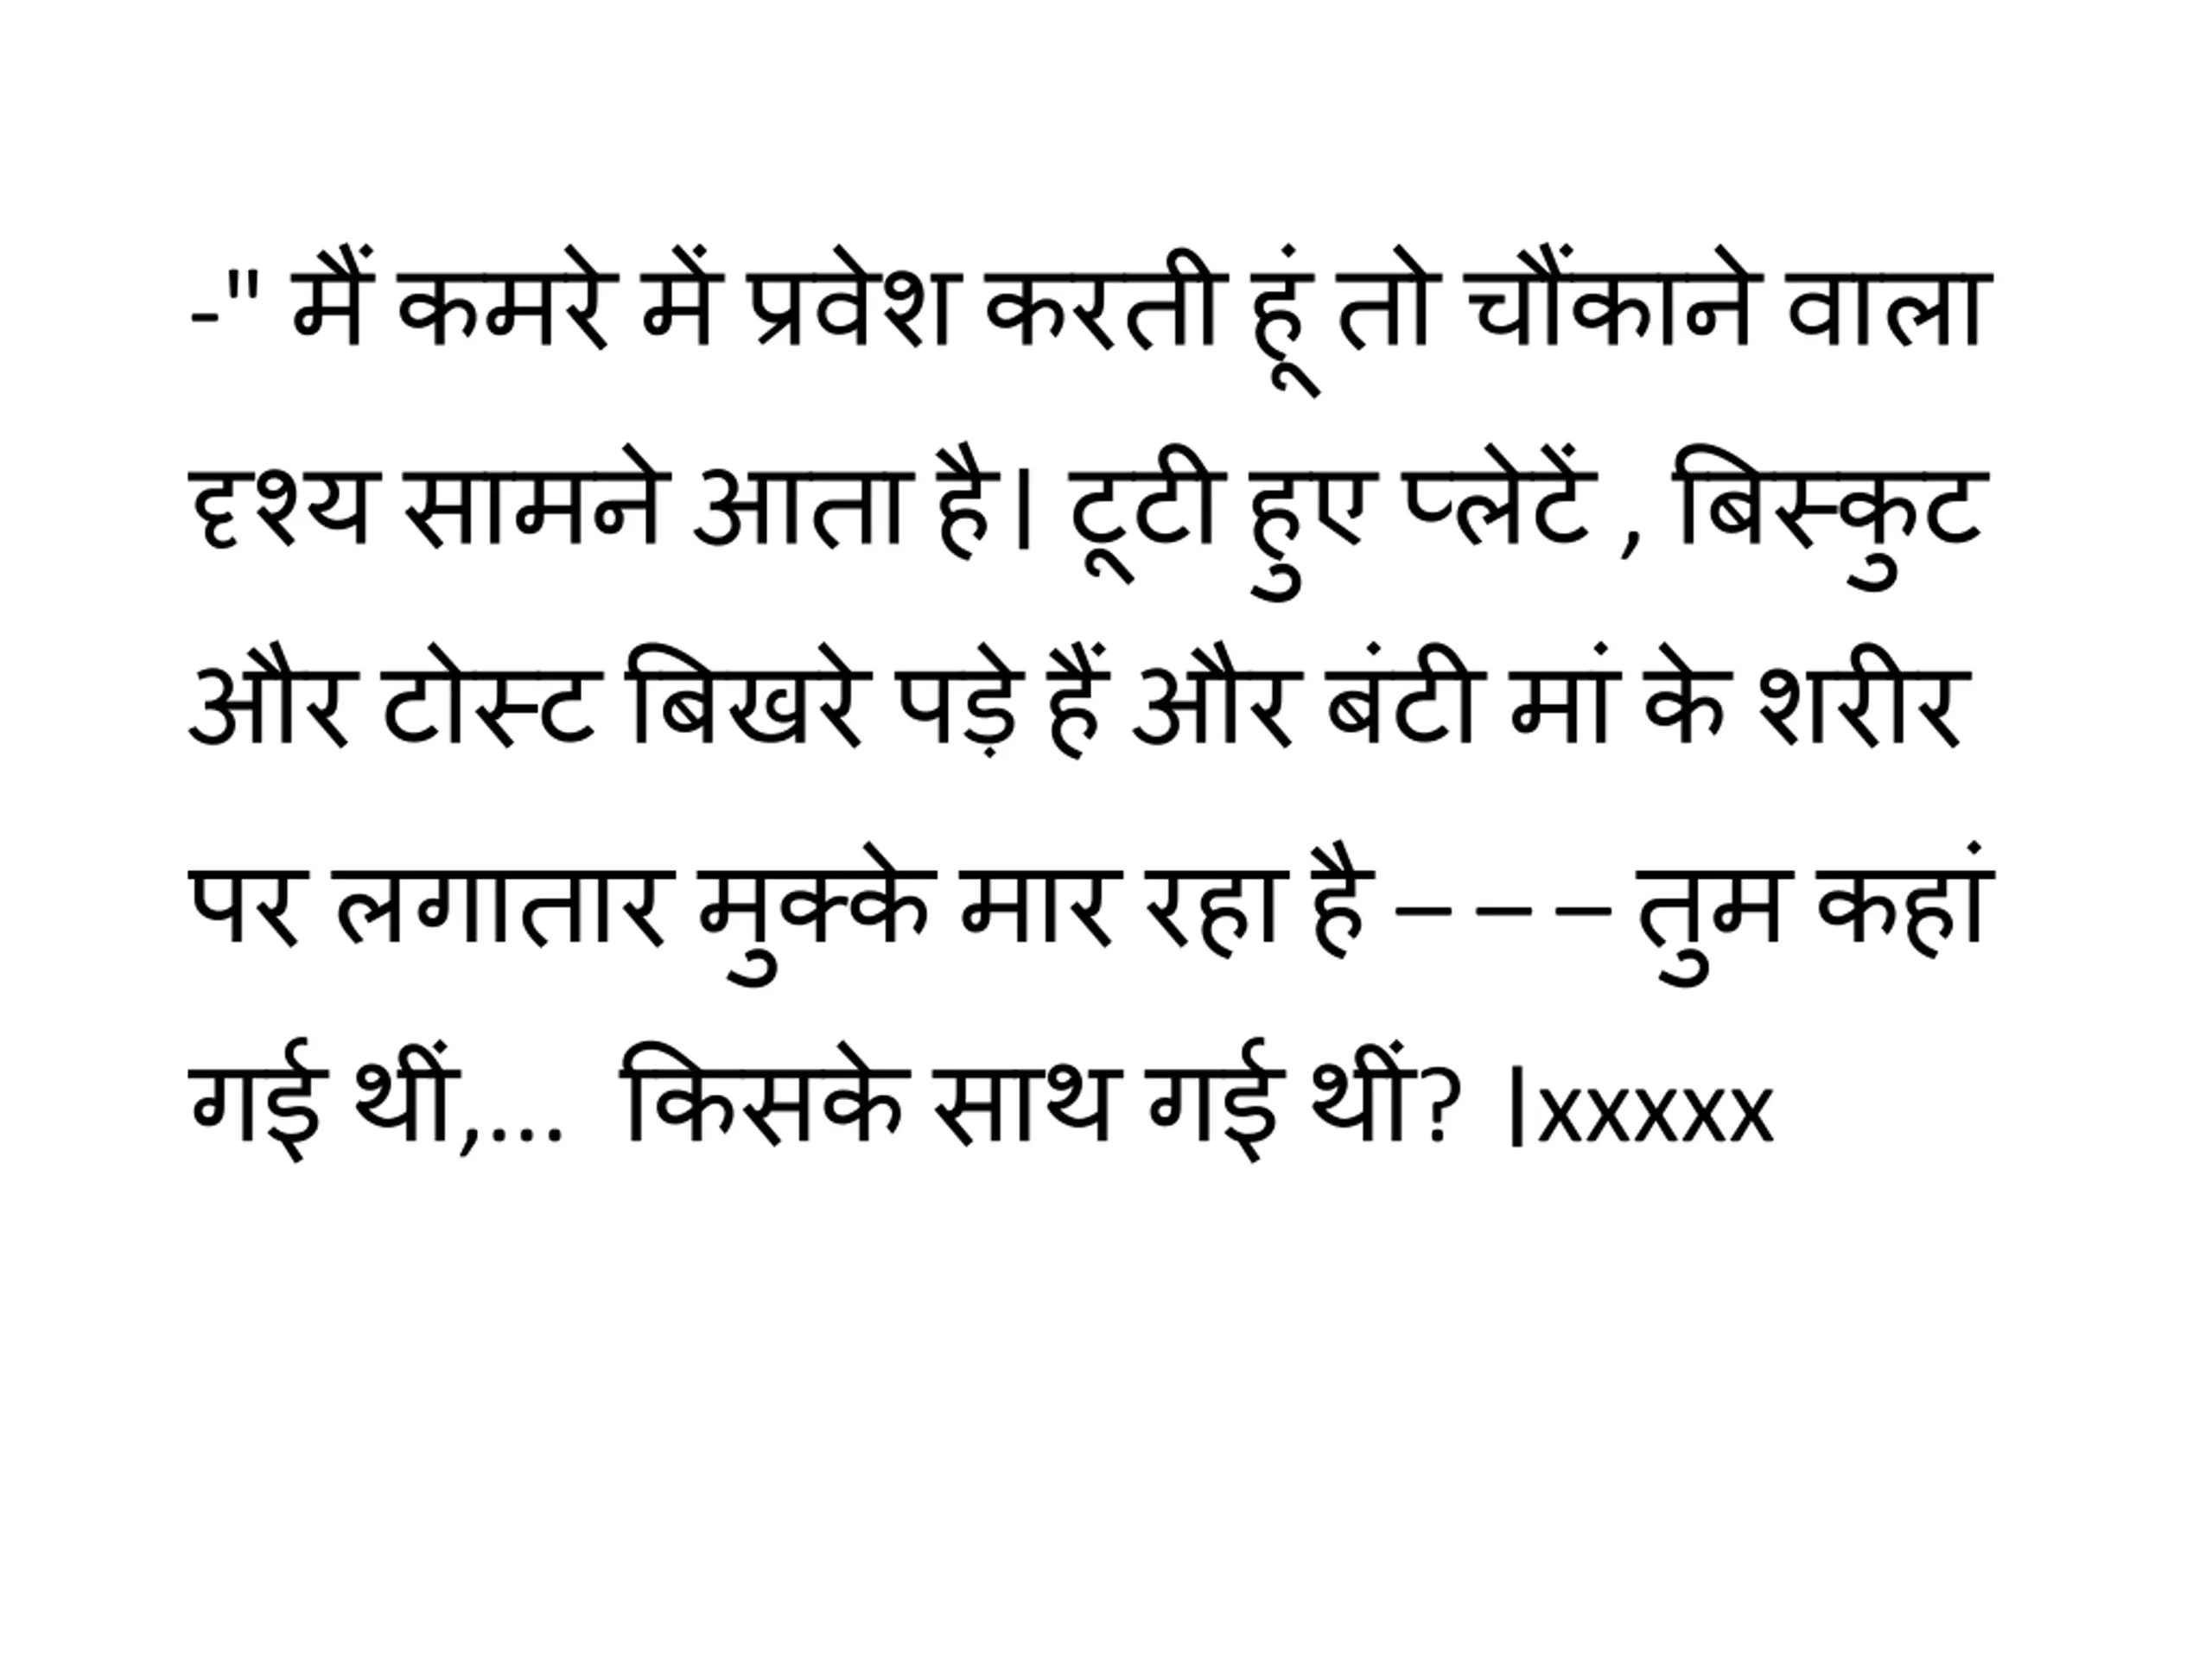 -" मैं कमरे में प्रवेश करती हूं तो चौंकाने वाला
दृश्य सामने आता है। टूटी हुए प्लेटें , बिस्कुट
और टोस्ट बिखरे पड़े हैं और बंटी मां के शरीर
पर लगातार मुक्के मार रहा है – – – तुम कहां
गई थीं,... किसके साथ गई थीं? |xxxxx